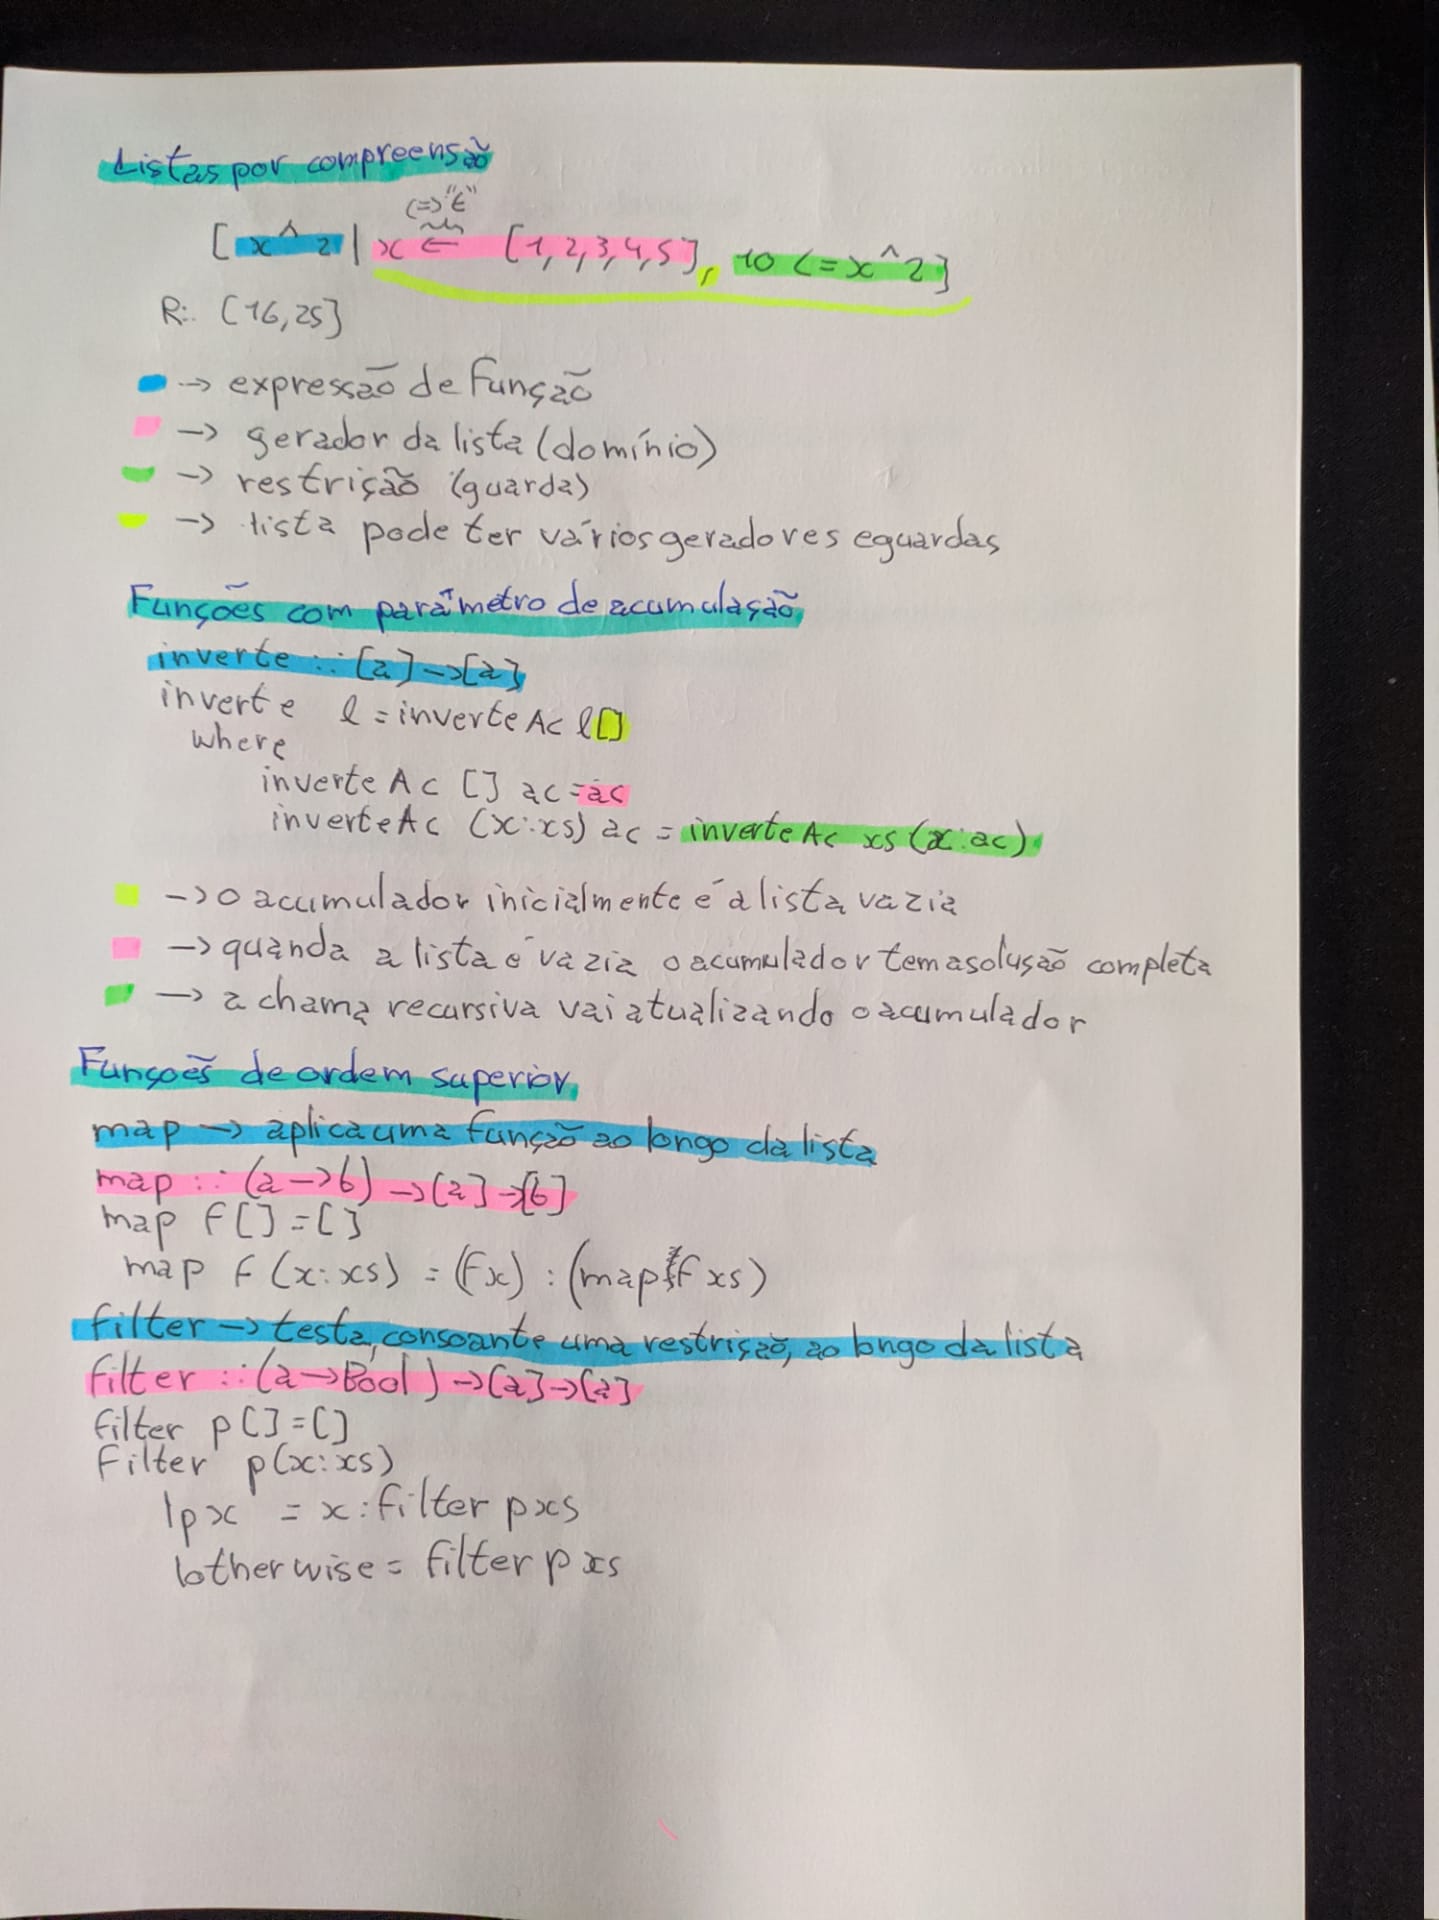 Listas por compreensão
(=) "∈"
[x^2 | x ← [1,2,3,4,5], 10 <= x^2]
R:. [16,25]
→ expressão de função
→ gerador da lista (domínio)
→ restrição (guarda)
→ lista pode ter vários geradores e guardas
Funções com parâmetro de acumulação
inverte :: [a] → [a]
inverte l = inverteAc l []
where
inverteAc [] ac = ac
inverteAc (x:xs) ac = inverteAc xs (x:ac)
→ o acumulador inicialmente é a lista vazia
→ quanda a lista é vazia o acumulador tem a solução completa
→ a chama recursiva vai atualizando o acumulador
Funções de ordem superior
map → aplica uma função ao longo da lista
map :: (a → b) → [a] → [b]
map f [] = []
map f (x:xs) = (f x) : (map f xs)
filter → testa, consoante uma restrição, ao longo da lista
filter :: (a → Bool) → [a] → [a]
filter p [] = []
Filter p (x:xs)
| p x = x : filter p xs
| otherwise = filter p xs